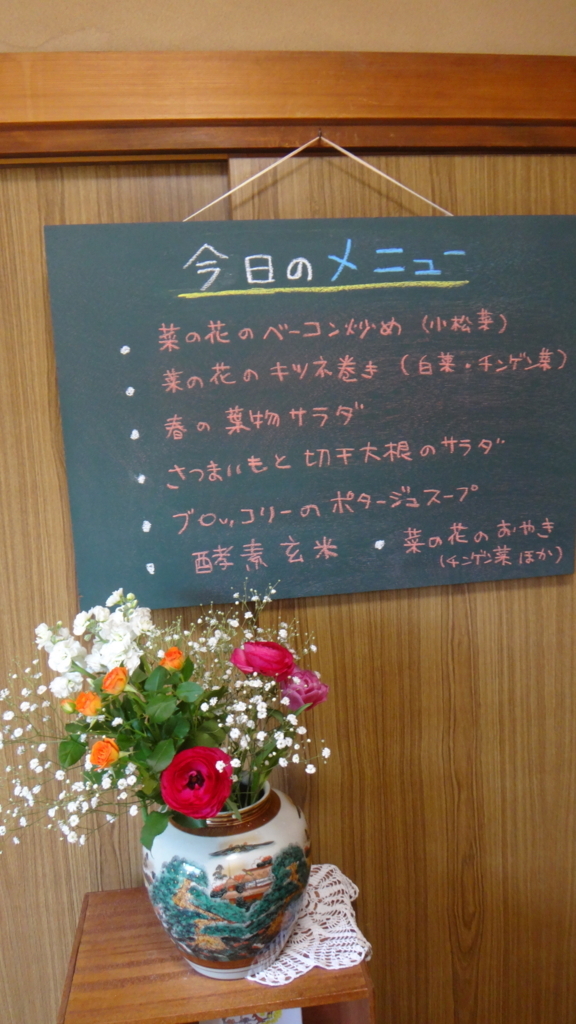 今日のメニュー
・菜の花のベーコン炒め（小松菜）
・菜の花のキツネ巻き（白菜・チンゲン菜）
・春の葉物サラダ
・さつまいもと切干大根のサラダ
・ブロッコリーのポタージュスープ
・酵素玄米 ・菜の花のおやき
（チンゲン菜ほか）